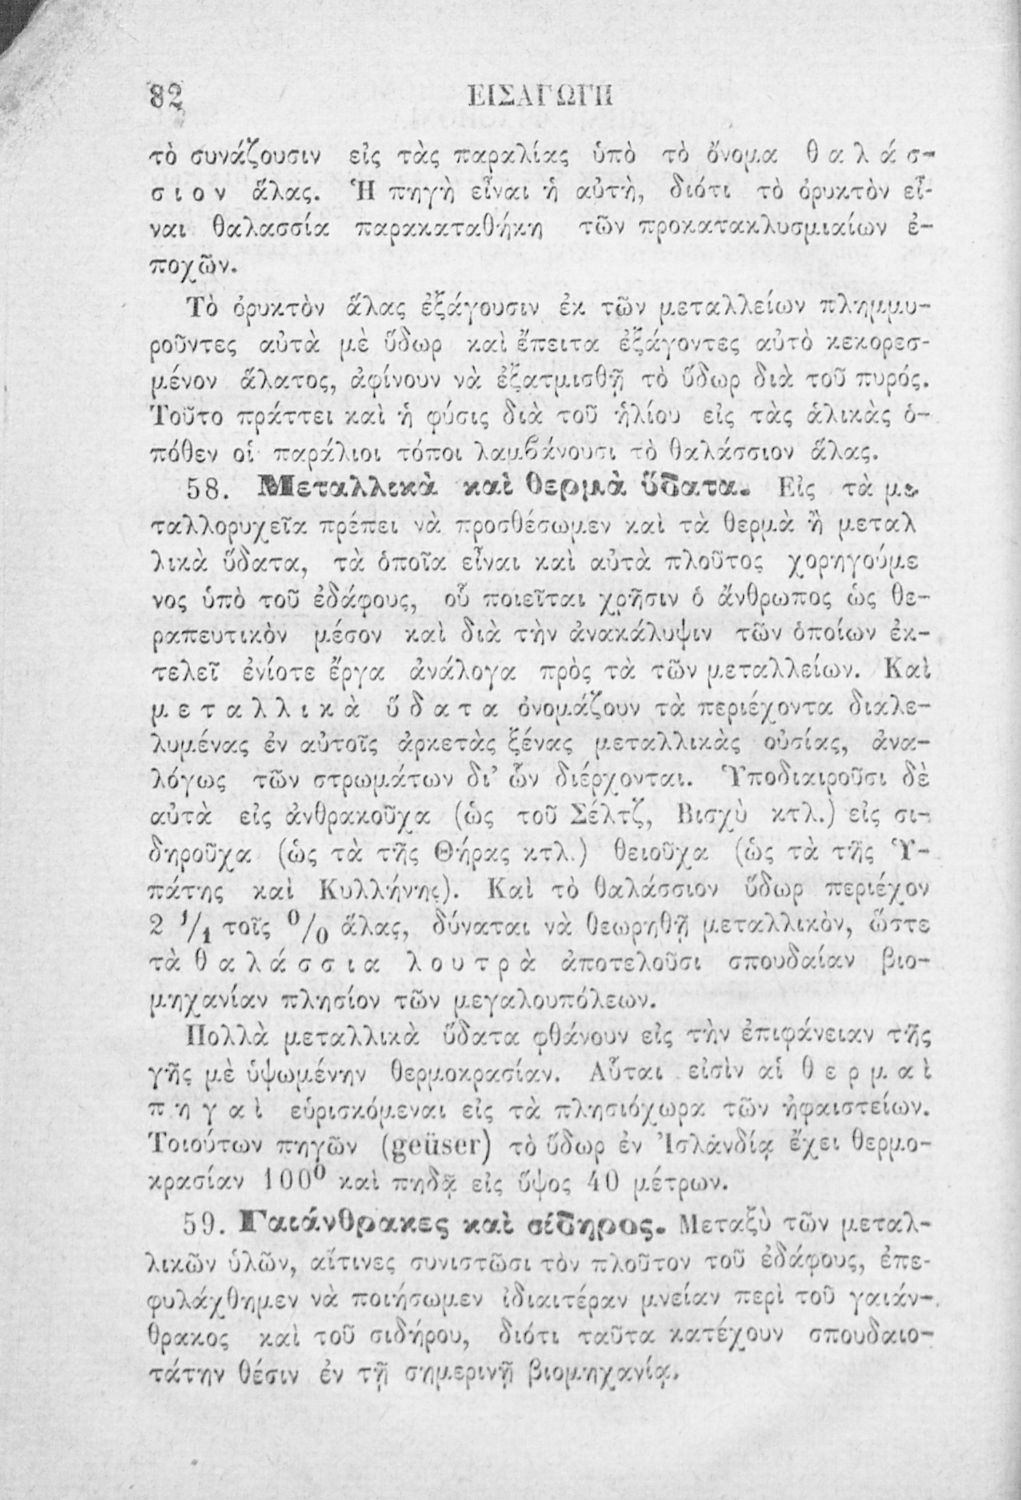 82 ΕΙΣΑΓΩΓΗ
τὸ συνάζουσιν εἰς τὰς παραλίας ὑπὸ τὸ ὄνομα θ α λ ά σ-
σ ι ο ν ἅλας. Ἡ πηγὴ εἶναι ἡ αὐτὴ, διότι τὸ ὀρυκτὸν εἶ-
ναι θαλασσία παρακαταθήκη τῶν προκατακλυσμιαίων ἐ-
ποχῶν.
Τὸ ὀρυκτὸν ἅλας ἐξάγουσιν ἐκ τῶν μεταλλείων πλημμυ-
ροῦντες αὐτὰ μὲ ὕδωρ καὶ ἔπειτα ἐξάγοντες αὐτὸ κεκορεσ-
μένον ἅλατος, ἀφίνουν νὰ ἐξατμισθῇ τὸ ὕδωρ διὰ τοῦ πυρός.
Τοῦτο πράττει καὶ ἡ φύσις διὰ τοῦ ἡλίου εἰς τὰς ἁλικὰς ὁ-
πόθεν οἱ παράλιοι τόποι λαμβάνουσι τὸ θαλάσσιον ἅλας.
58. Μεταλλικὰ καὶ θερμὰ ὕδατα. Εἰς τὰ με-
ταλλορυχεῖα πρέπει νὰ προσθέσωμεν καὶ τὰ θερμὰ ἢ μεταλ
λικὰ ὕδατα, τὰ ὁποῖα εἶναι καὶ αὐτὰ πλοῦτος χορηγούμε
νος ὑπὸ τοῦ ἐδάφους, οὗ ποιεῖται χρῆσιν ὁ ἄνθρωπος ὡς θε-
ραπευτικὸν μέσον καὶ διὰ τὴν ἀνακάλυψιν τῶν ὁποίων ἐκ-
τελεῖ ἐνίοτε ἔργα ἀνάλογα πρὸς τὰ τῶν μεταλλείων. Καὶ
μ ε τ α λ λ ι κ ὰ ὕ δ α τ α ὀνομάζουν τὰ περιέχοντα διαλε-
λυμένας ἐν αὐτοῖς ἀρκετὰς ξένας μεταλλικὰς οὐσίας, ἀνα-
λόγως τῶν στρωμάτων δι' ὧν διέρχονται. Ὑποδιαιροῦσι δὲ
αὐτὰ εἰς ἀνθρακοῦχα (ὡς τοῦ Σέλτζ, Βισχὺ κτλ.) εἰς σι-
δηροῦχα (ὡς τὰ τῆς Θήρας κτλ.) θειοῦχα (ὡς τὰ τῆς Ὑ-
πάτης καὶ Κυλλήνης). Καὶ τὸ θαλάσσιον ὕδωρ περιέχον
2 1/4 τοῖς 0/0 ἅλας, δύναται νὰ θεωρηθῇ μεταλλικὸν, ὥστε
τὰ θ α λ ά σ σ ι α λ ο υ τ ρ ὰ ἀποτελοῦσι σπουδαίαν βιο-
μηχανίαν πλησίον τῶν μεγαλουπόλεων.
Πολλὰ μεταλλικὰ ὕδατα φθάνουν εἰς τὴν ἐπιφάνειαν τῆς
γῆς μὲ ὑψωμένην θερμοκρασίαν. Αὗται εἰσὶν αἱ θ ε ρ μ α ὶ
π η γ α ὶ εὑρισκόμεναι εἰς τὰ πλησιόχωρα τῶν ἡφαιστείων.
Τοιούτων πηγῶν (geüser) τὸ ὕδωρ ἐν Ἰσλάνδίᾳ ἔχει θερμο-
κρασίαν 100⁰ καὶ πηδᾷ εἰς ὕψος 40 μέτρων.
59. Γαιάνθρακες καὶ σίδηρος. Μεταξὺ τῶν μεταλ-
λικῶν ὑλῶν, αἵτινες συνιστῶσι τὸν πλοῦτον τοῦ ἐδάφους, ἐπε-
φυλάχθημεν νὰ ποιήσωμεν ἰδιαιτέραν μνείαν περὶ τοῦ γαιάν-
θρακος καὶ τοῦ σιδήρου, διότι ταῦτα κατέχουν σπουδαιο-
τάτην θέσιν ἐν τῇ σημερινῇ βιομηχανίᾳ.